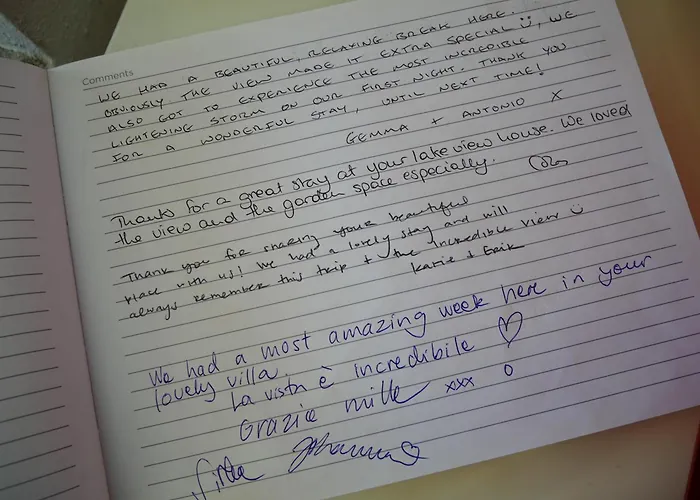 Comments
WE HAD A BEAUTIFUL, RELAXING BREAK HERE.
OBVIOUSLY THE VIEW MADE IT EXTRA SPECIAL ü, WE
ALSO GOT TO EXPERIENCE THE MOST INCREDIBLE
LIGHTENING STORM ON OUR FIRST NIGHT. THANK YOU
FOR A WONDERFUL STAY, UNTIL NEXT TIME!
GEMMA + ANTONIO X
Thanks for a great stay at your lake view house. We loved
the view and the garden space especially.
Thank you for sharing your beautiful
place with us! We had a lovely stay and will
always remember this trip & the incredible view ü
Katie & Erik
We had a most amazing week here in your
lovely villa.
La vista è incredibile ♡
Grazie mille xxx o
Johanna ♡